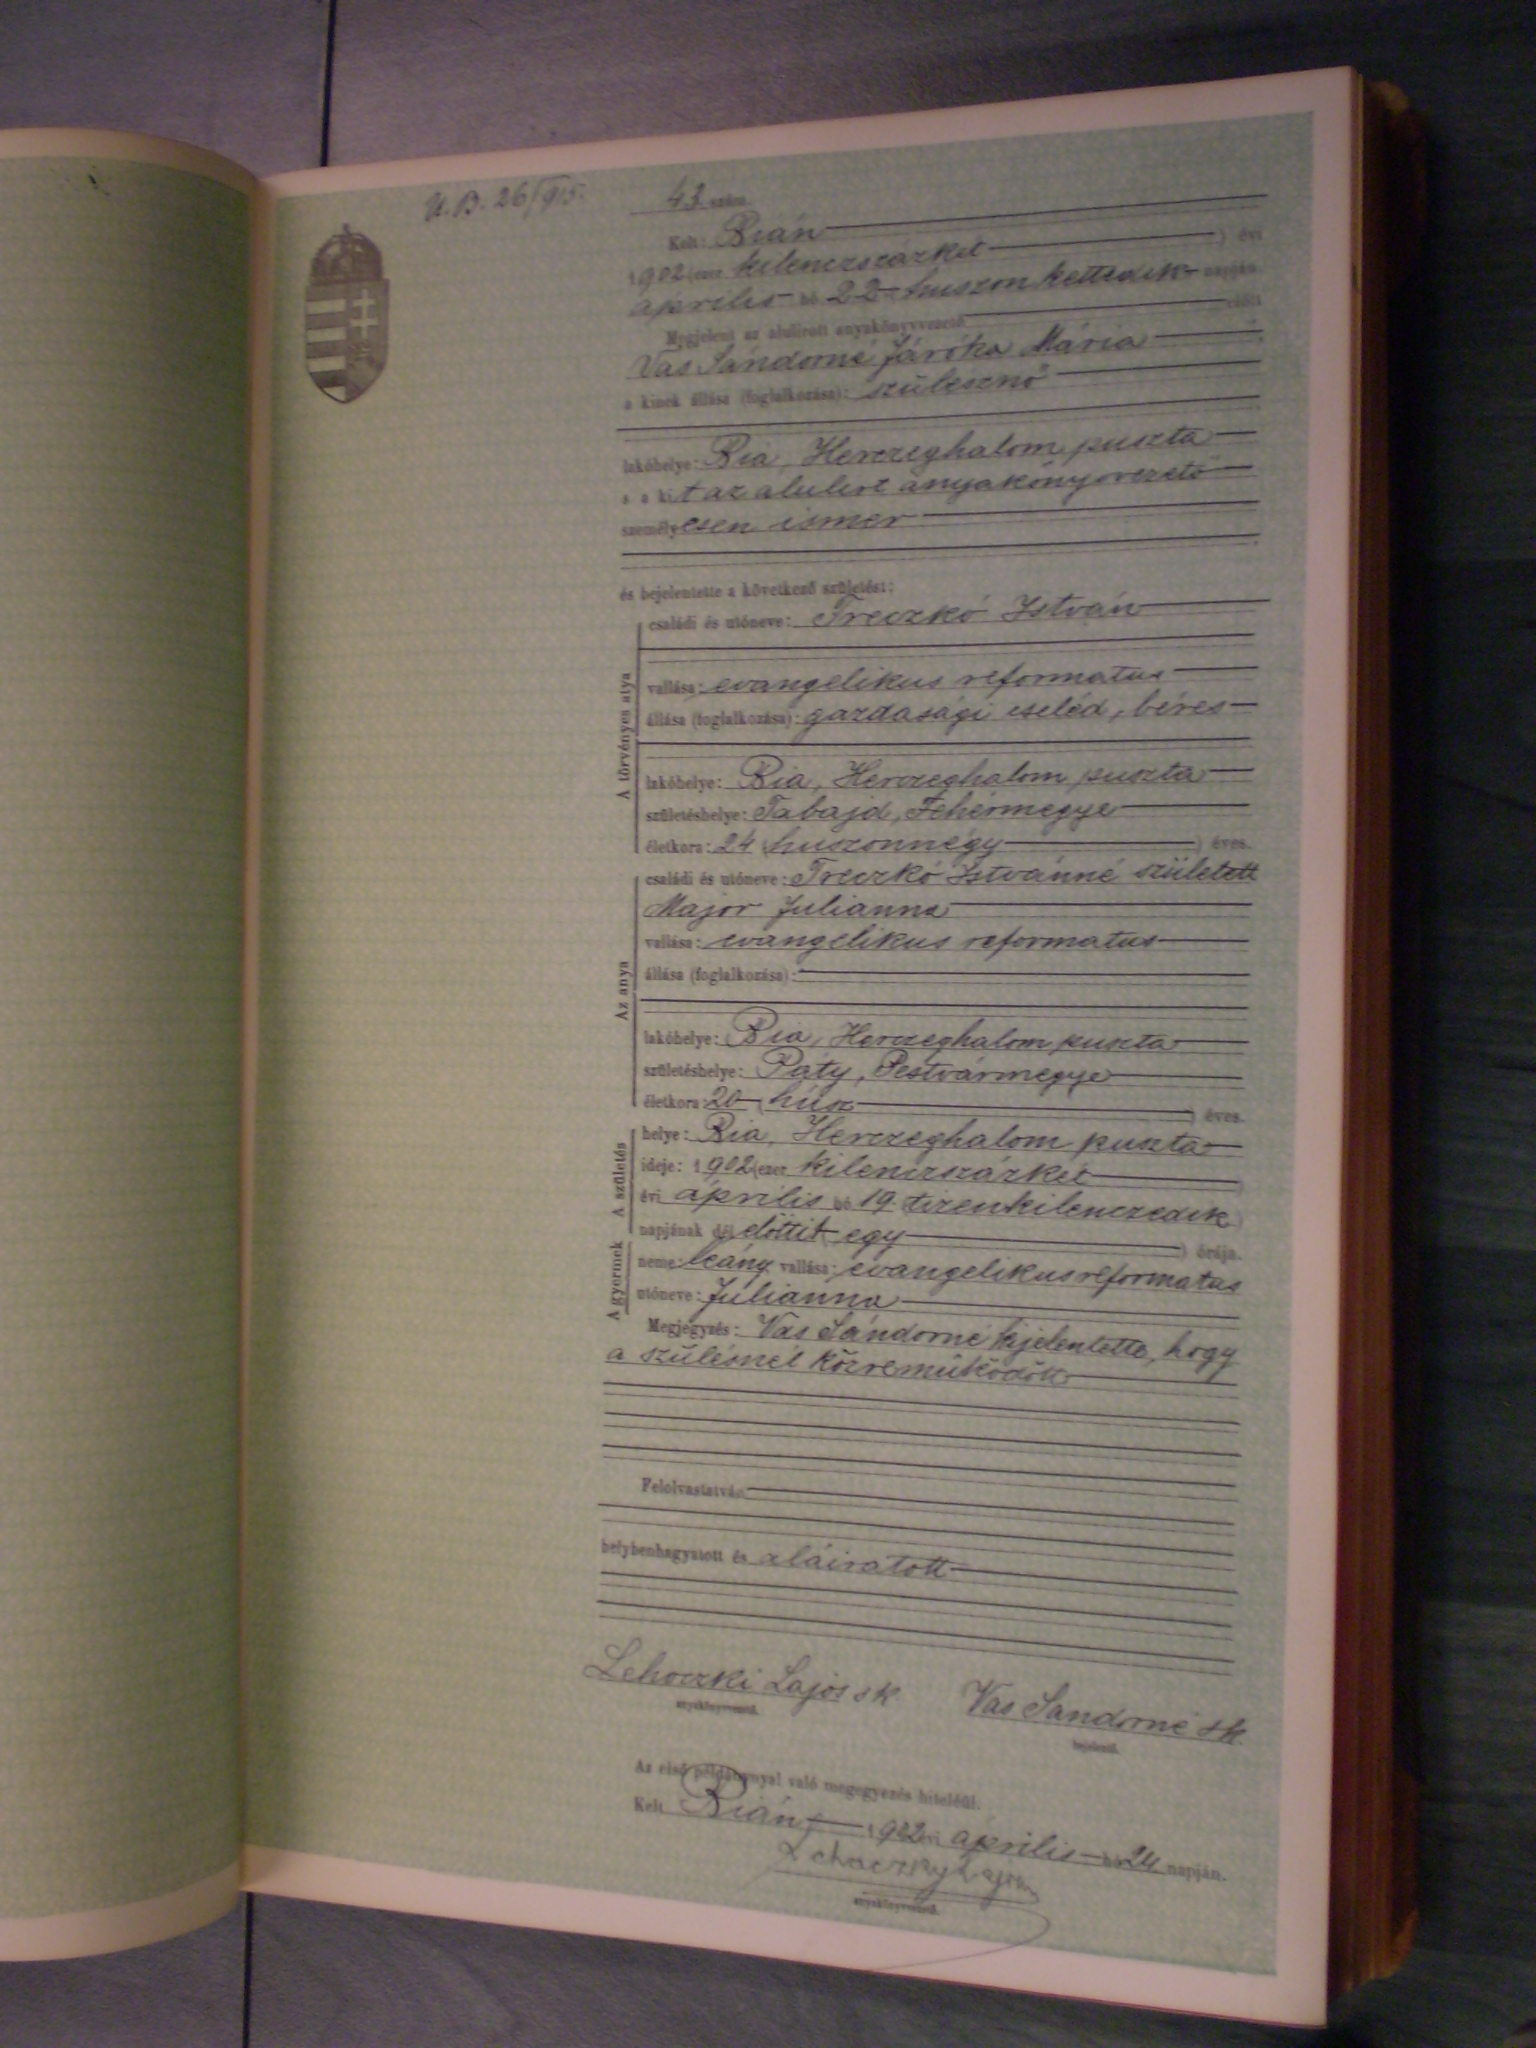 U. B. 26/915.
43. szám.
Kelt: Bián
1902 (ezer kilenczszázkét ) évi
április hó 22 (huszonkettedik napján.
Megjelent az alulirott anyakönyvvezető előtt
Vas Sándorné Járóka Mária
a kinek állása (foglalkozása): szülésznő
lakóhelye: Bia, Herczeghalom puszta
s a kit az alulirt anyakönyvvezető
személyesen ismer
és bejelentette a következő születést:
A törvényes atya
családi és utóneve: Treczkó István
vallása: evangelikus reformatus
állása (foglalkozása): gazdasági cseléd, béres
lakóhelye: Bia, Herczeghalom puszta
születéshelye: Tabajd, Fehérmegye
életkora: 24 (huszonnégy ) éves.
Az anya
családi és utóneve: Treczkó Istvánné született
Major Julianna
vallása: evangelikus reformatus
állása (foglalkozása):
lakóhelye: Bia, Herczeghalom puszta
születéshelye: Páty, Pestvármegye
életkora: 20 (húsz ) éves.
A születés
helye: Bia, Herczeghalom puszta
ideje: 1902 (ezer kilenczszázkét
évi április hó 19. (tizenkilenczedik)
napjának dél előtti (egy ) órája.
A gyermek
neme: leány vallása: evangelikus reformatus
utóneve: Julianna
Megjegyzés: Vas Sándorné kijelentette, hogy
a szülésnél közreműködött
Felolvastatván
helybenhagyatott és aláiratott
Lehoczki Lajos sk Vas Sandorné sk
anyakönyvvezető. bejelentő.
Az első példánynyal való megegyezés hiteléül.
Kelt Bián 1902 évi április hó 24 napján.
Lehoczky Lajos
anyakönyvvezető.